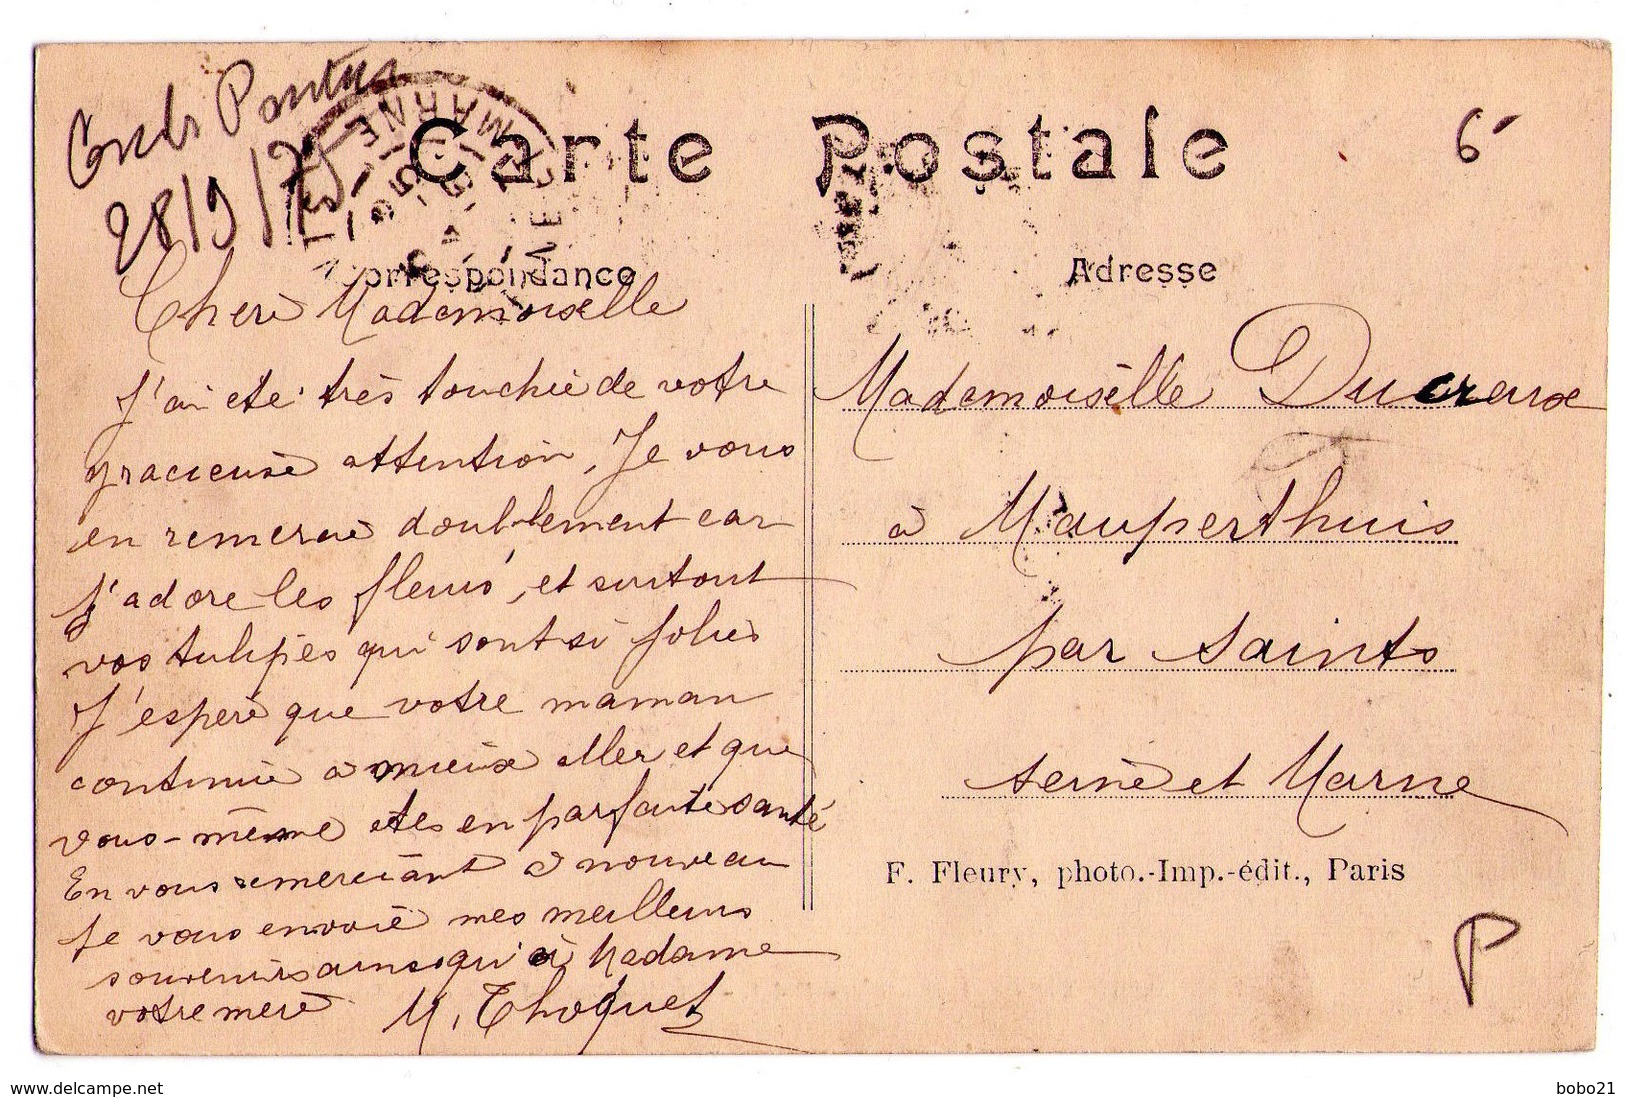 28/9/75
6
MARNE
Carte Postale
Correspondance
Chere Mademoiselle
J'ai eté très touchée de votre
gracieuse attention, Je vous
en remercie doublement car
j'adore les fleurs, et surtout
vos tulipes qui sont si jolies
J'espère que votre maman
continue à mieux aller et que
vous-même etes en parfaite santé
En vous remerciant à nouveau
Je vous envoie mes meilleurs
souvenirs ainsi qu'à Madame
votre mere M. Choquet
Adresse
Mademoiselle Ducreux
à Mauperthuis
par Saints
seine et Marne
F. Fleury, photo.-Imp.-édit., Paris
P
www.delcampe.net
bobo21